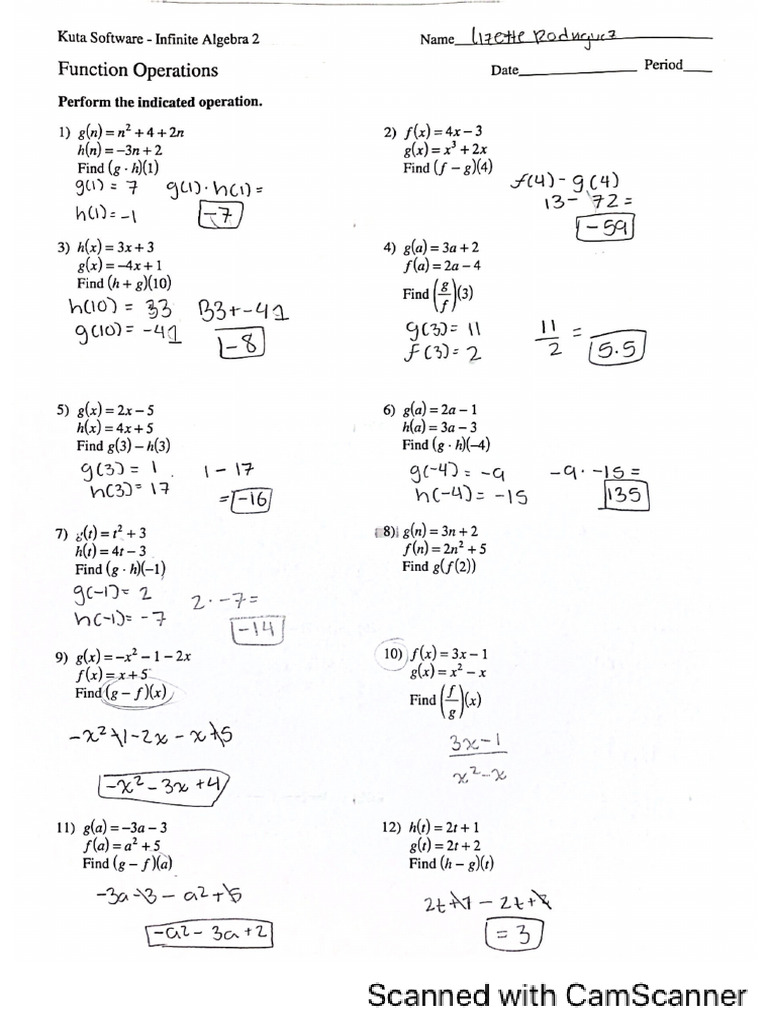 Kuta Software - Infinite Algebra 2
Name Lizette Rodriguez
Function Operations
Date Period
Perform the indicated operation.
1) g(n) = n² + 4 + 2n
h(n) = −3n + 2
Find (g · h)(1)
g(1) = 7 g(1) · h(1) =
h(1) = -1 -7
2) f(x) = 4x − 3
g(x) = x³ + 2x
Find (f − g)(4)
f(4) - g(4)
13 - 72 =
-59
3) h(x) = 3x + 3
g(x) = −4x + 1
Find (h + g)(10)
h(10) = 33 33 + -41
g(10) = -41
-8
4) g(a) = 3a + 2
f(a) = 2a − 4
Find (g/f)(3)
g(3) = 11 11/2 = 5.5
f(3) = 2
5) g(x) = 2x − 5
h(x) = 4x + 5
Find g(3) − h(3)
g(3) = 1 1 - 17
h(3) = 17 = -16
6) g(a) = 2a − 1
h(a) = 3a − 3
Find (g · h)(−4)
g(-4) = -9 -9 · -15 =
h(-4) = -15 135
7) g(t) = t² + 3
h(t) = 4t − 3
Find (g · h)(−1)
g(-1) = 2 2 · -7 =
h(-1) = -7 -14
8) g(n) = 3n + 2
f(n) = 2n² + 5
Find g(f(2))
9) g(x) = −x² − 1 − 2x
f(x) = x + 5
Find (g − f)(x)
-x² + 1 - 2x - x + 5
-x² - 3x + 4
10) f(x) = 3x − 1
g(x) = x² − x
Find (f/g)(x)
3x-1
x²-x
11) g(a) = −3a − 3
f(a) = a² + 5
Find (g − f)(a)
-3a - 3 - a² + 5
-a² - 3a + 2
12) h(t) = 2t + 1
g(t) = 2t + 2
Find (h − g)(t)
2t + 1 - 2t + 2
= 3
Scanned with CamScanner